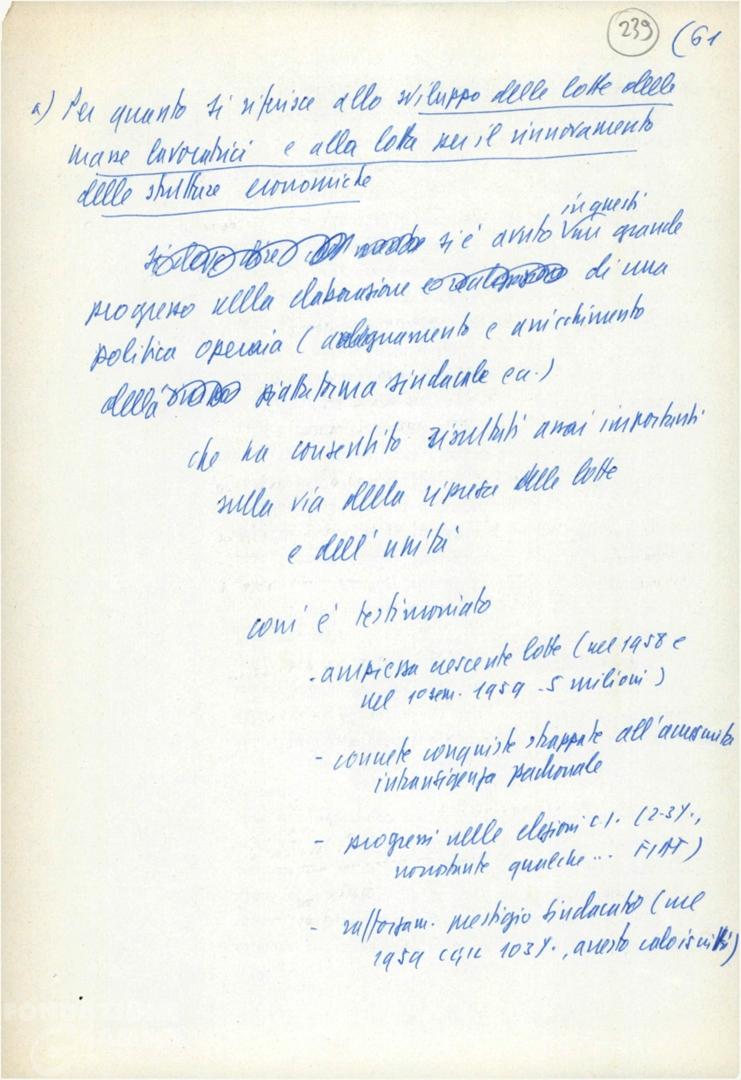 239 (61
a) Per quanto si riferisce allo sviluppo delle lotte delle
masse lavoratrici e alla lotta per il rinnovamento
delle strutture economiche
in questi
si è avuto un grande
progresso nella elaborazione di una
politica operaia (adeguamento e arricchimento
della piattaforma sindacale ecc.)
che ha consentito risultati assai importanti
sulla via della ripresa delle lotte
e dell'unità
com'è testimoniato
- ampiezza crescente lotte (nel 1958 e
nel 1° sem. 1959 - 5 milioni)
- concrete conquiste strappate all'accresciuta
intransigenza padronale
- progressi nelle elezioni C.I. (2-3%,
nonostante qualche... FIAT)
- rafforzam. prestigio sindacato (nel
1959 CGIL 103%, arresto calo iscritti)